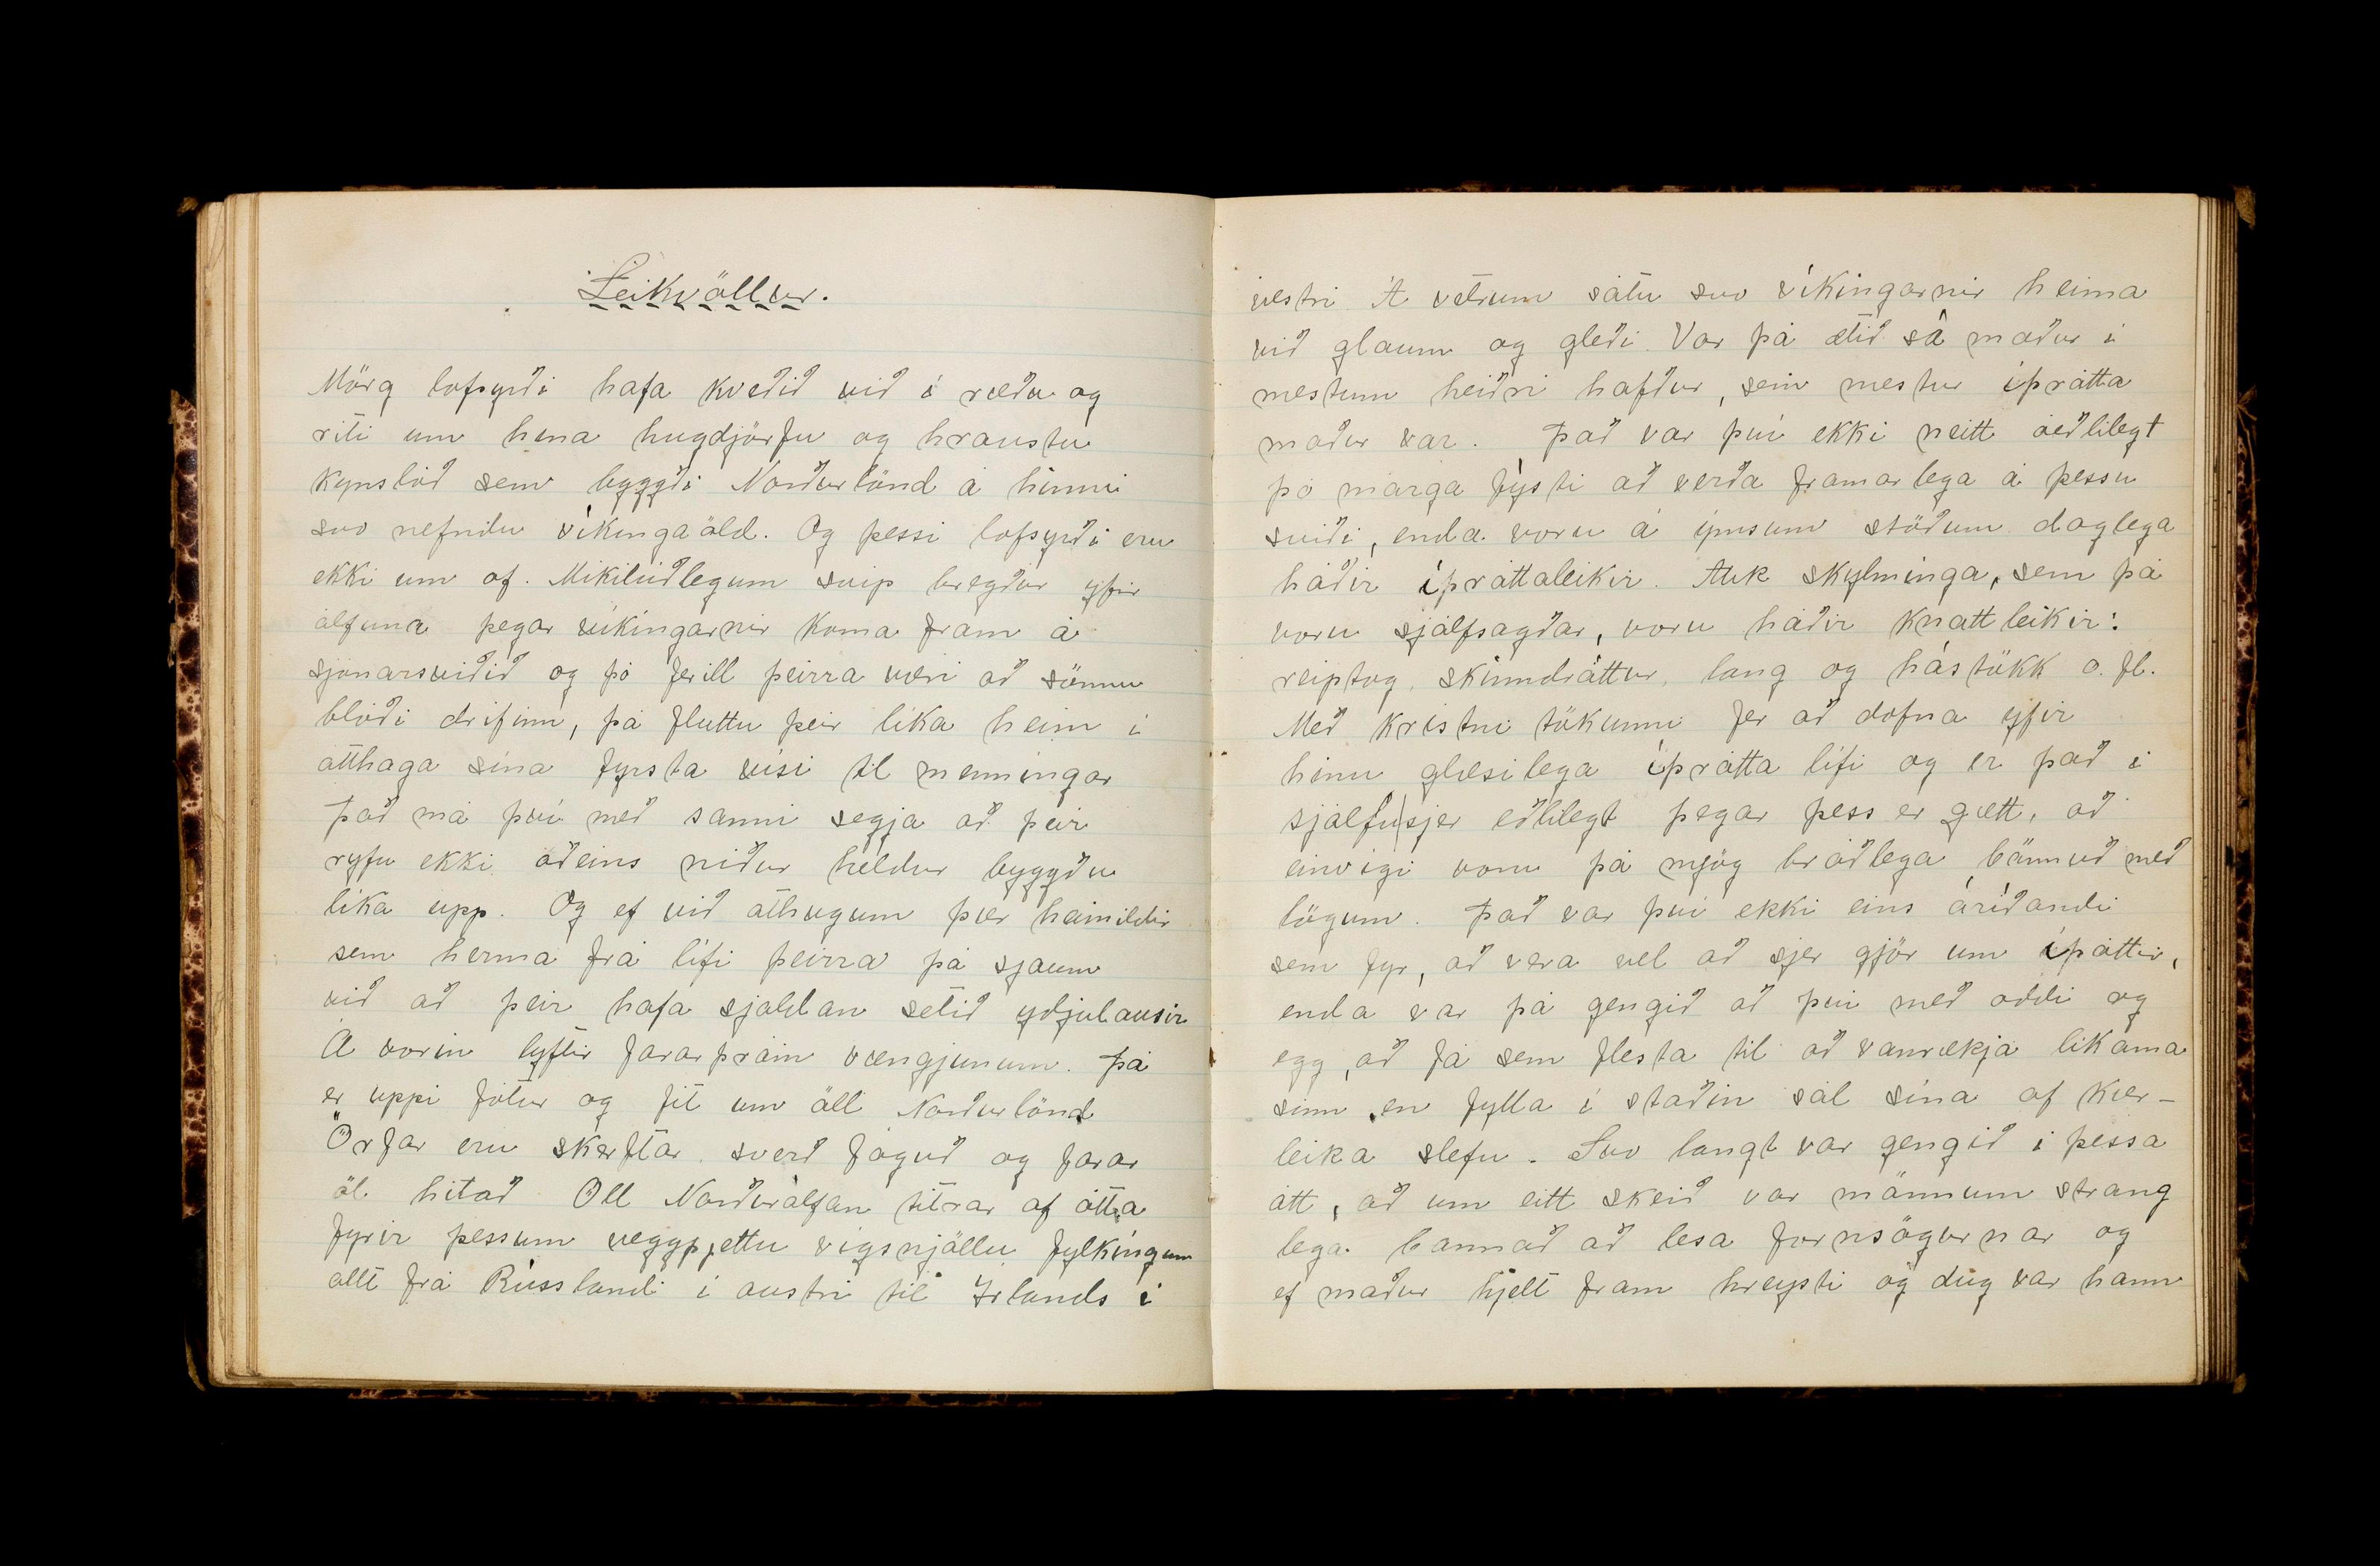 Leikvöllur.
Mörg lofsyrði hafa kveðið við í ræðu og
riti um hina hugdjörfu og hraustu
kynslóð sem byggði Norðurlönd á hinni
svo nefndu víkingaöld. Og þessi lofsyrði eru
ekki um of. Mikilúðlegum svip bregður yfir
álfuna þegar víkingarnir koma fram á
sjónarsviðið og þó ferill þeirra væri að sönnu
blóði drifinn, þá fluttu þeir líka heim í
átthaga sína fyrsta vísi til menningar
Það má því með sanni segja að þeir
ryfu ekki aðeins niður heldur byggðu
líka upp. Og ef við athugum þær haimildir
sem herma frá lífi þeirra þá sjáum
við að þeir hafa sjaldan setið yðjulausir
Á vorin lyftir fararþráin vængjunum. Þá
er uppi fótur og fit um öll Norðurlönd
Örfar eru skerftar sverð fáguð og farar
öl hitað Öll Norðurálfan titrar af ótta
fyrir þessum veggþjettu vígsnjöllu fylkingum
allt frá Rússlandi í austri til Irlands í
vestri Á vetrum sátu svo víkingarnir heima
við glaum og gleði. Var þá ætíð sá maður í
mestum heiðri hafður, sem mestur íþrótta
maður var. Það var því ekki neitt óeðlilegt
þó marga fýsti að verða framarlega á þessu
sviði, enda voru á ýmsum stöðum daglega
háðir íþróttaleikir. Auk skylminga, sem þá
voru sjálfsagðar, voru háðir knattleikir:
reiptog, skinndráttur, lang og hástökk o. fl.
Með kristni tökunni fer að dofna yfir
hinu glæsilega íþrótta lífi og er það í
sjálfu|sjer eðlilegt þegar þess er gætt, að
einvígi voru þá mjög bráðlega bönnuð með
lögum. Það var því ekki eins áríðandi
sem fyr, að vera vel að sjer gjör um íþáttir,
enda var þá gengið að því með oddi og
egg, að fá sem flesta til að vanrækja líkama
sinn en fylla í staðin sál sína af kær-
leika slefu. Svo langt var gengið í þessa
átt, að um eitt skeið var mönnum strang
lega bannað að lesa fornsögurnar og
ef maður hjelt fram hreysti og dug var hann